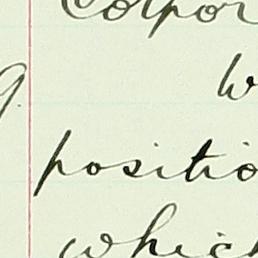 Corpor
W
positio
which